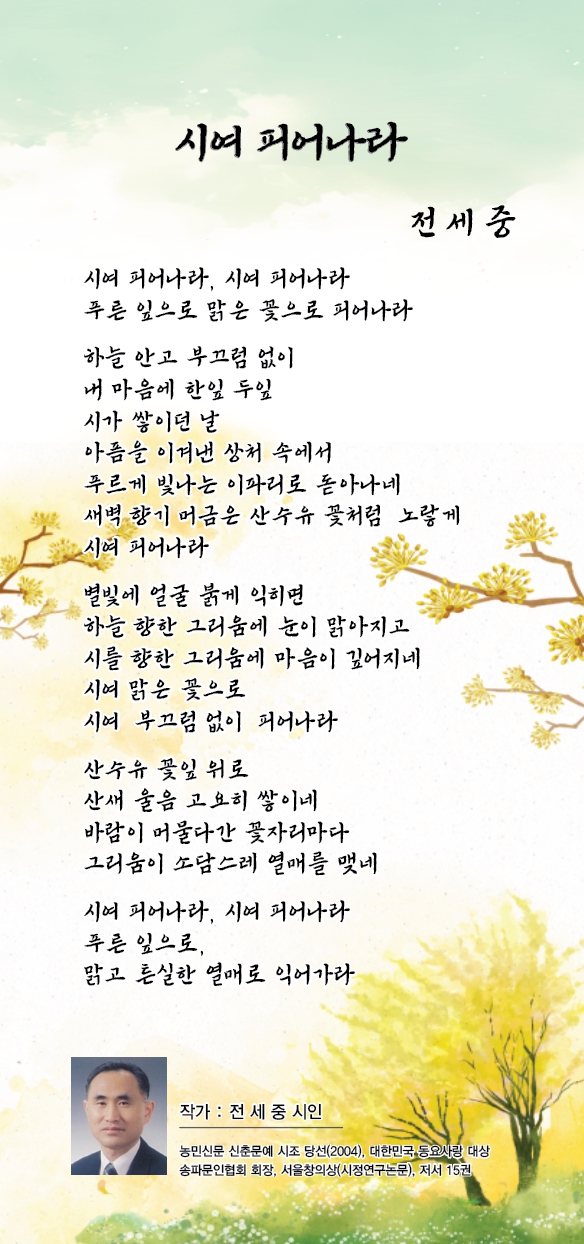 시여 피어나라
전 세 중
시여 피어나라, 시여 피어나라
푸른 잎으로 맑은 꽃으로 피어나라
하늘 안고 부끄럼 없이
내 마음에 한잎 두잎
시가 쌓이던 날
아픔을 이겨낸 상처 속에서
푸르게 빛나는 이파리로 돋아나네
새벽 향기 머금은 산수유 꽃처럼 노랗게
시여 피어나라
별빛에 얼굴 붉게 익히면
하늘 향한 그리움에 눈이 맑아지고
시를 향한 그리움에 마음이 깊어지네
시여 맑은 꽃으로
시여 부끄럼 없이 피어나라
산수유 꽃잎 위로
산새 울음 고요히 쌓이네
바람이 머물다간 꽃자리마다
그리움이 소담스레 열매를 맺네
시여 피어나라, 시여 피어나라
푸른 잎으로,
맑고 튼실한 열매로 익어가라
작가 : 전 세 중 시인
농민신문 신춘문예 시조 당선(2004), 대한민국 동요사랑 대상
송파문인협회 회장, 서울창의상(시정연구논문), 저서 15권